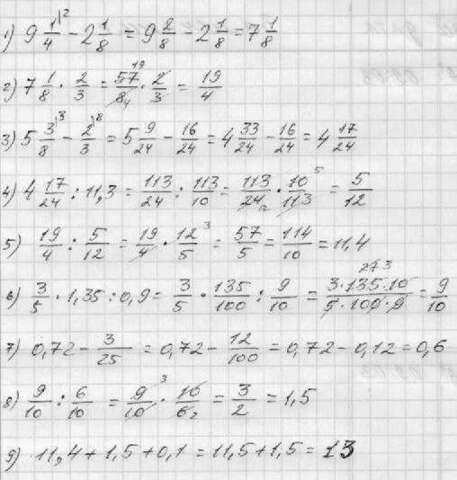 1) 9 1/4 \2 - 2 1/8 = 9 2/8 - 2 1/8 = 7 1/8
2) 7 1/8 · 2/3 = 57 19/8 4 · 2/3 = 19/4
3) 5 3/8 \3 - 2/3 \8 = 5 9/24 - 16/24 = 4 33/24 - 16/24 = 4 17/24
4) 4 17/24 : 11,3 = 113/24 : 113/10 = 113/24 12 · 10 5/113 = 5/12
5) 19/4 : 5/12 = 19/4 · 12 3/5 = 57/5 = 114/10 = 11,4
6) 3/5 · 1,35 : 0,9 = 3/5 · 135/100 : 9/10 = 3·135 27 3·10/5·100·9 = 9/10
7) 0,72 - 3/25 = 0,72 - 12/100 = 0,72 - 0,12 = 0,6
8) 9/10 : 6/10 = 9 3/10 · 10/6 2 = 3/2 = 1,5
9) 11,4 + 1,5 + 0,1 = 11,5 + 1,5 = 13